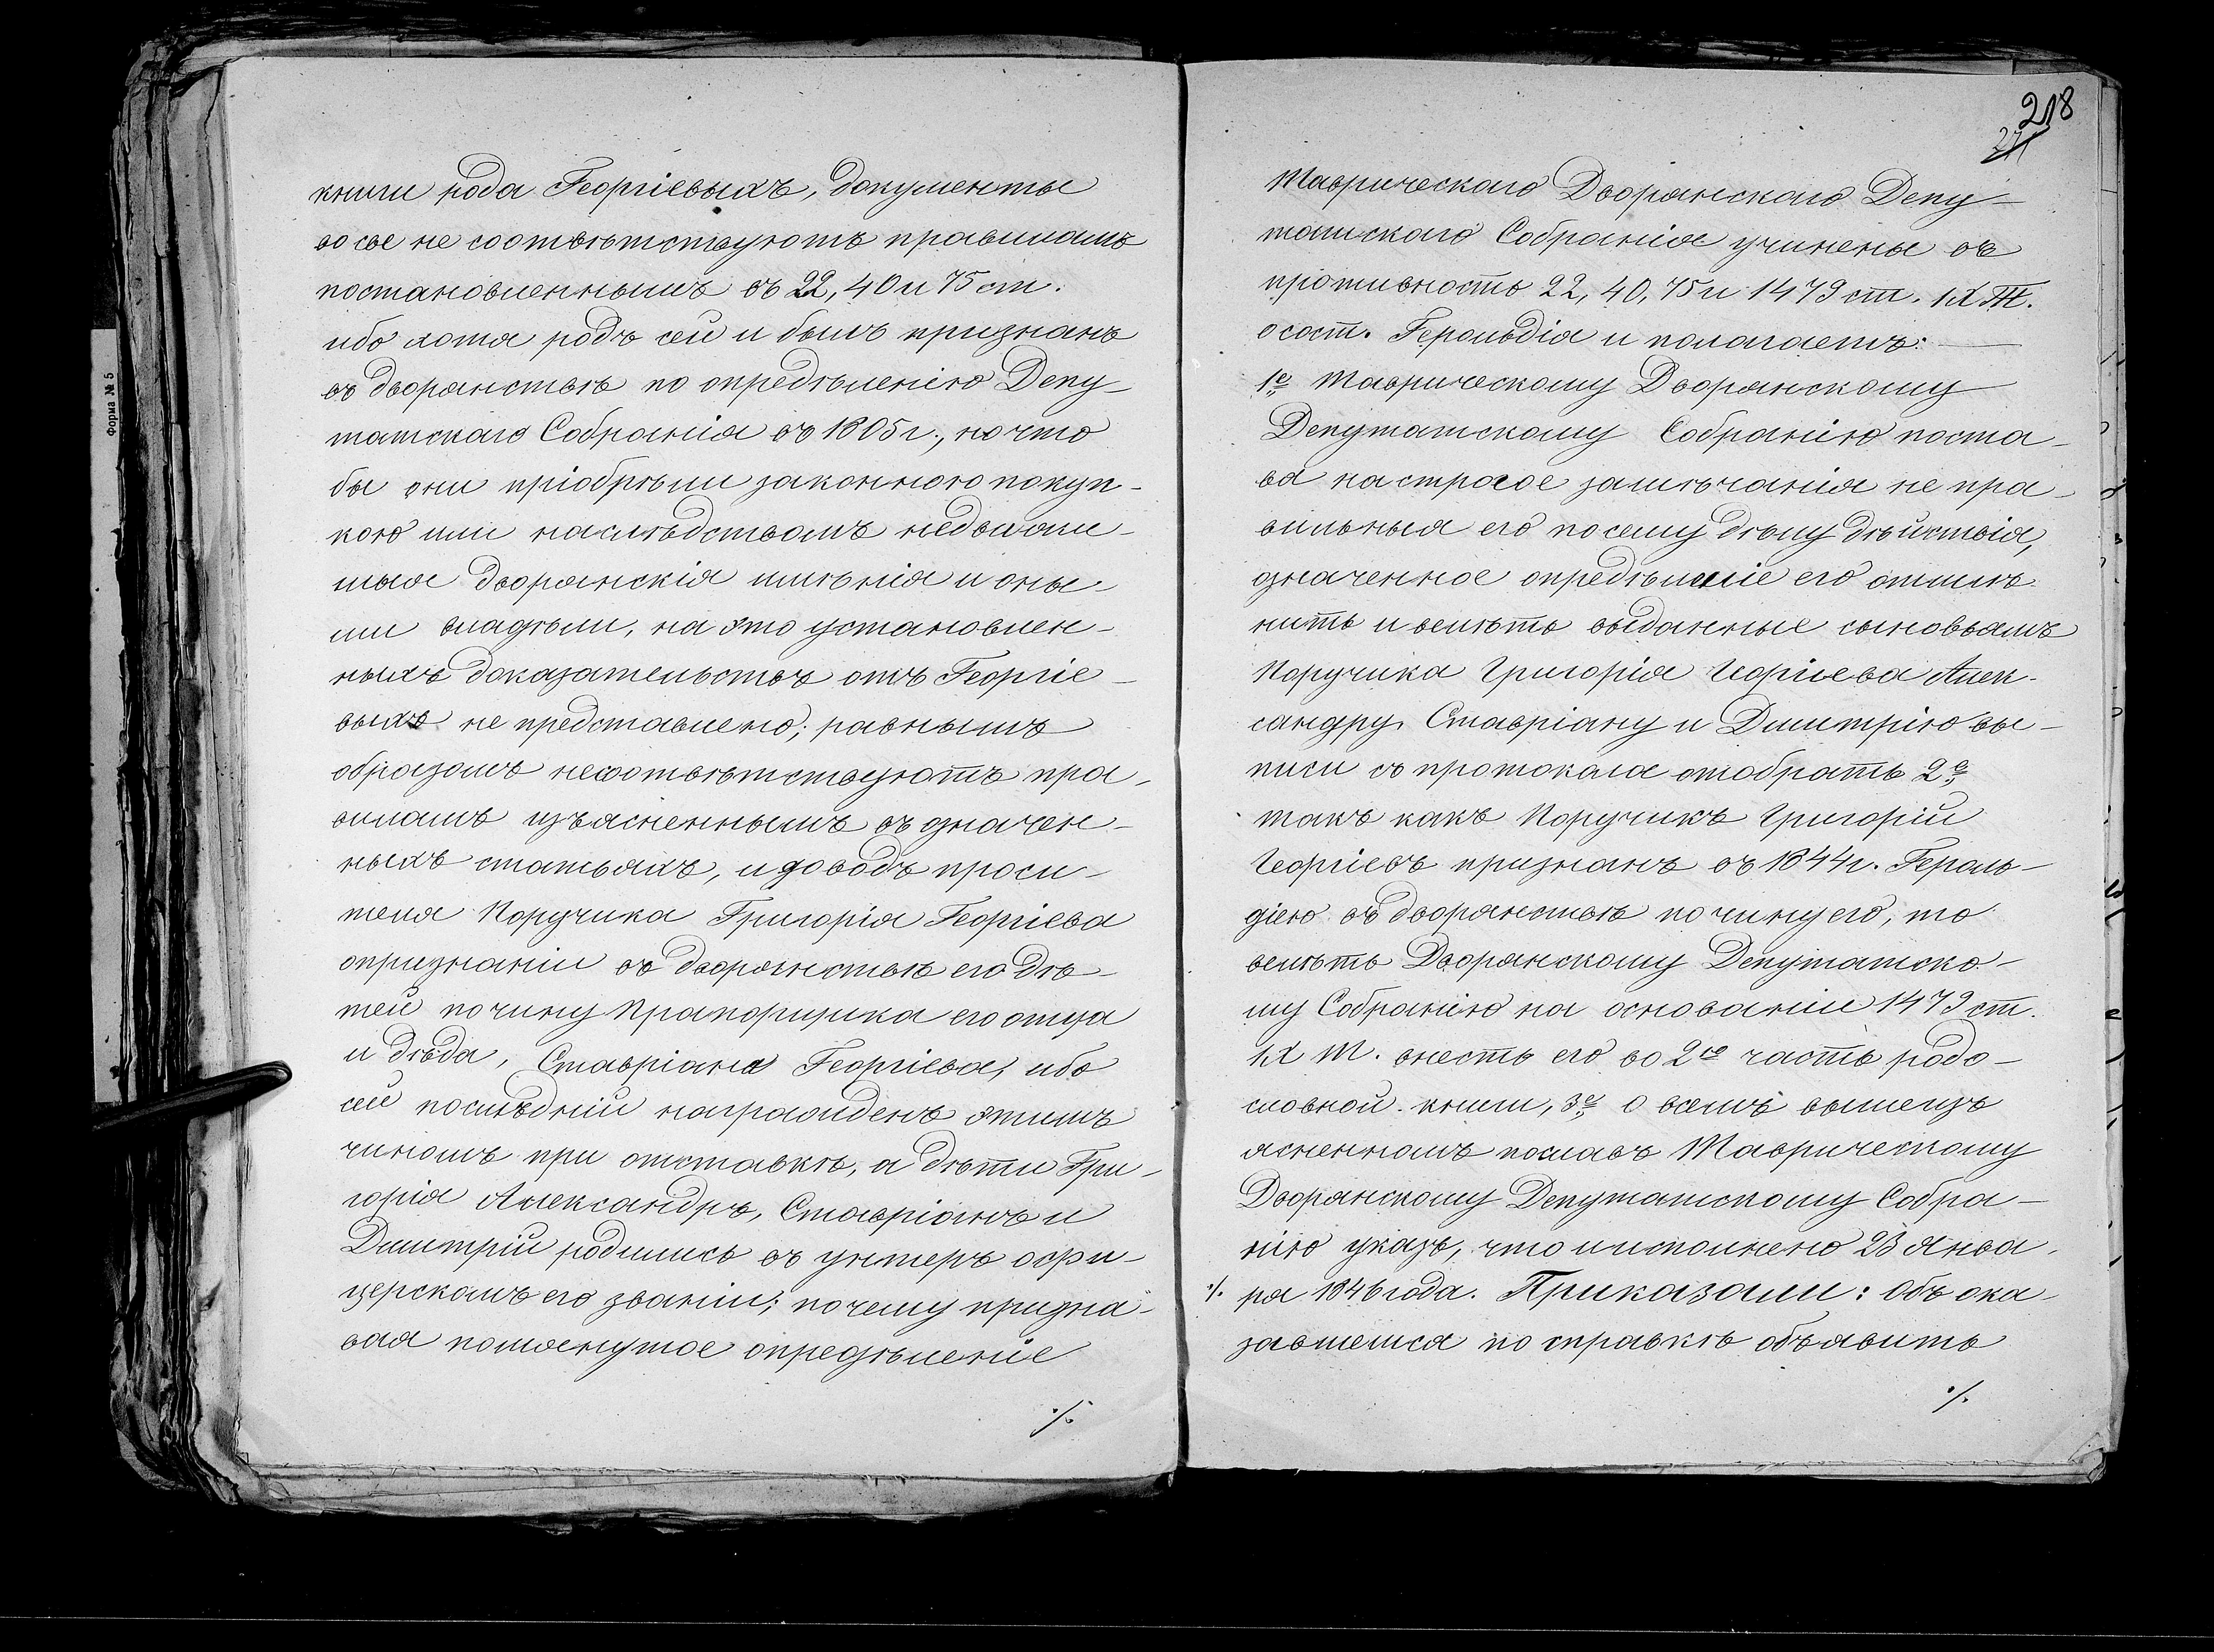 книги рода Георгіевыхъ, документы
во све не соотвѣтствуютъ правиламъ
постановленнымъ въ 22, 40 и 75 ст.
ибо хотя родъ сей и былъ признанъ
въ дворянствѣ по опредѣленію Депу-
татскаго Собранія въ 1805 г., но что
бы они пріобрѣли законною покуп-
кою или наслѣдствомъ недвижи-
мыя дворянскія имѣнія и оны-
ми владѣли, на это установлен-
ныхъ доказательствъ отъ Георгіе-
выхъ не представлено; равнымъ
образомъ несоотвѣтствуютъ пра-
виламъ изъясненнымъ въ означен-
ныхъ статьяхъ, и доводъ проси-
теля Поручика Григорія Георгіева
опризнаніи въ дворянствѣ его дѣ-
тей по чину Прапорщика его отца
и дѣда, Ставріана Георгіева, ибо
сей послѣдній награжденъ этимъ
чиномъ при отставкѣ, а дѣти Гри-
горія Александръ, Ставріанъ и
Димитрій родились въ унтеръ офи-
церскомъ его званіи; почему призна-
вая помянутое опредѣленіе
·/.
218
271
Таврическаго Дворянскаго Депу-
татскаго Собранія учинены въ
противность 22, 40, 75 и 1479 ст. IX Т.
о сост. Герольдія и полагаетъ:
1е Таврическому Дворянскому
Депутатскому Собранію поста-
вя на строгое замѣчанія не пра-
вильныя его по сему дѣлу дѣйствія,
означенное опредѣленіе его отмѣ-
нить и велѣть выданные сыновьямъ
Поручика Григорія Георгіева Алек-
сандру, Ставріану и Димитрію вы-
писи съ протокола отобрать 2е
такъ какъ Поручикъ Григорій
Георгіевъ признанъ въ 1844 г. Героль-
діею въ дворянствѣ по чину его, то
велѣть Дворянскому Депутатско-
му Собранію на основаніи 1479 ст.
IX Т. внесть его во 2ю часть родо-
словной книги, 3е О всемъ вышеизъ
ясненномъ пославъ Таврическому
Дворянскому Депутатскому Собра-
нію указъ, что и исполнено 23 Янва-
·/. ря 1846 года. Приказали: Объ ока-
завшемся по справкѣ объявить
·/.
Форма № 5